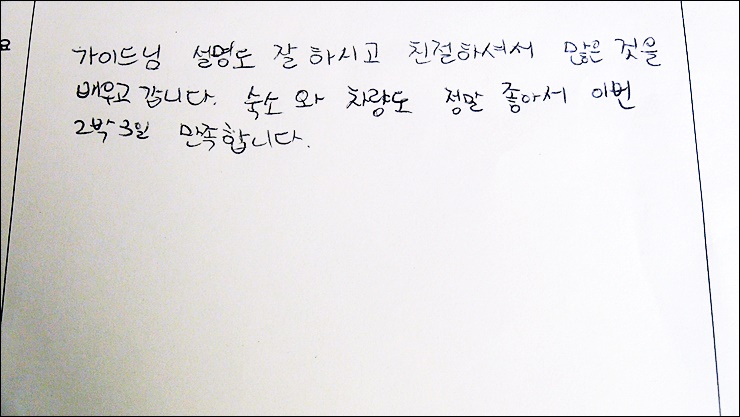 요
가이드님 설명도 잘 하시고 친절하셔서 많은 것을
배우고 갑니다. 숙소와 차량도 정말 좋아서 이번
2박 3일 만족합니다.